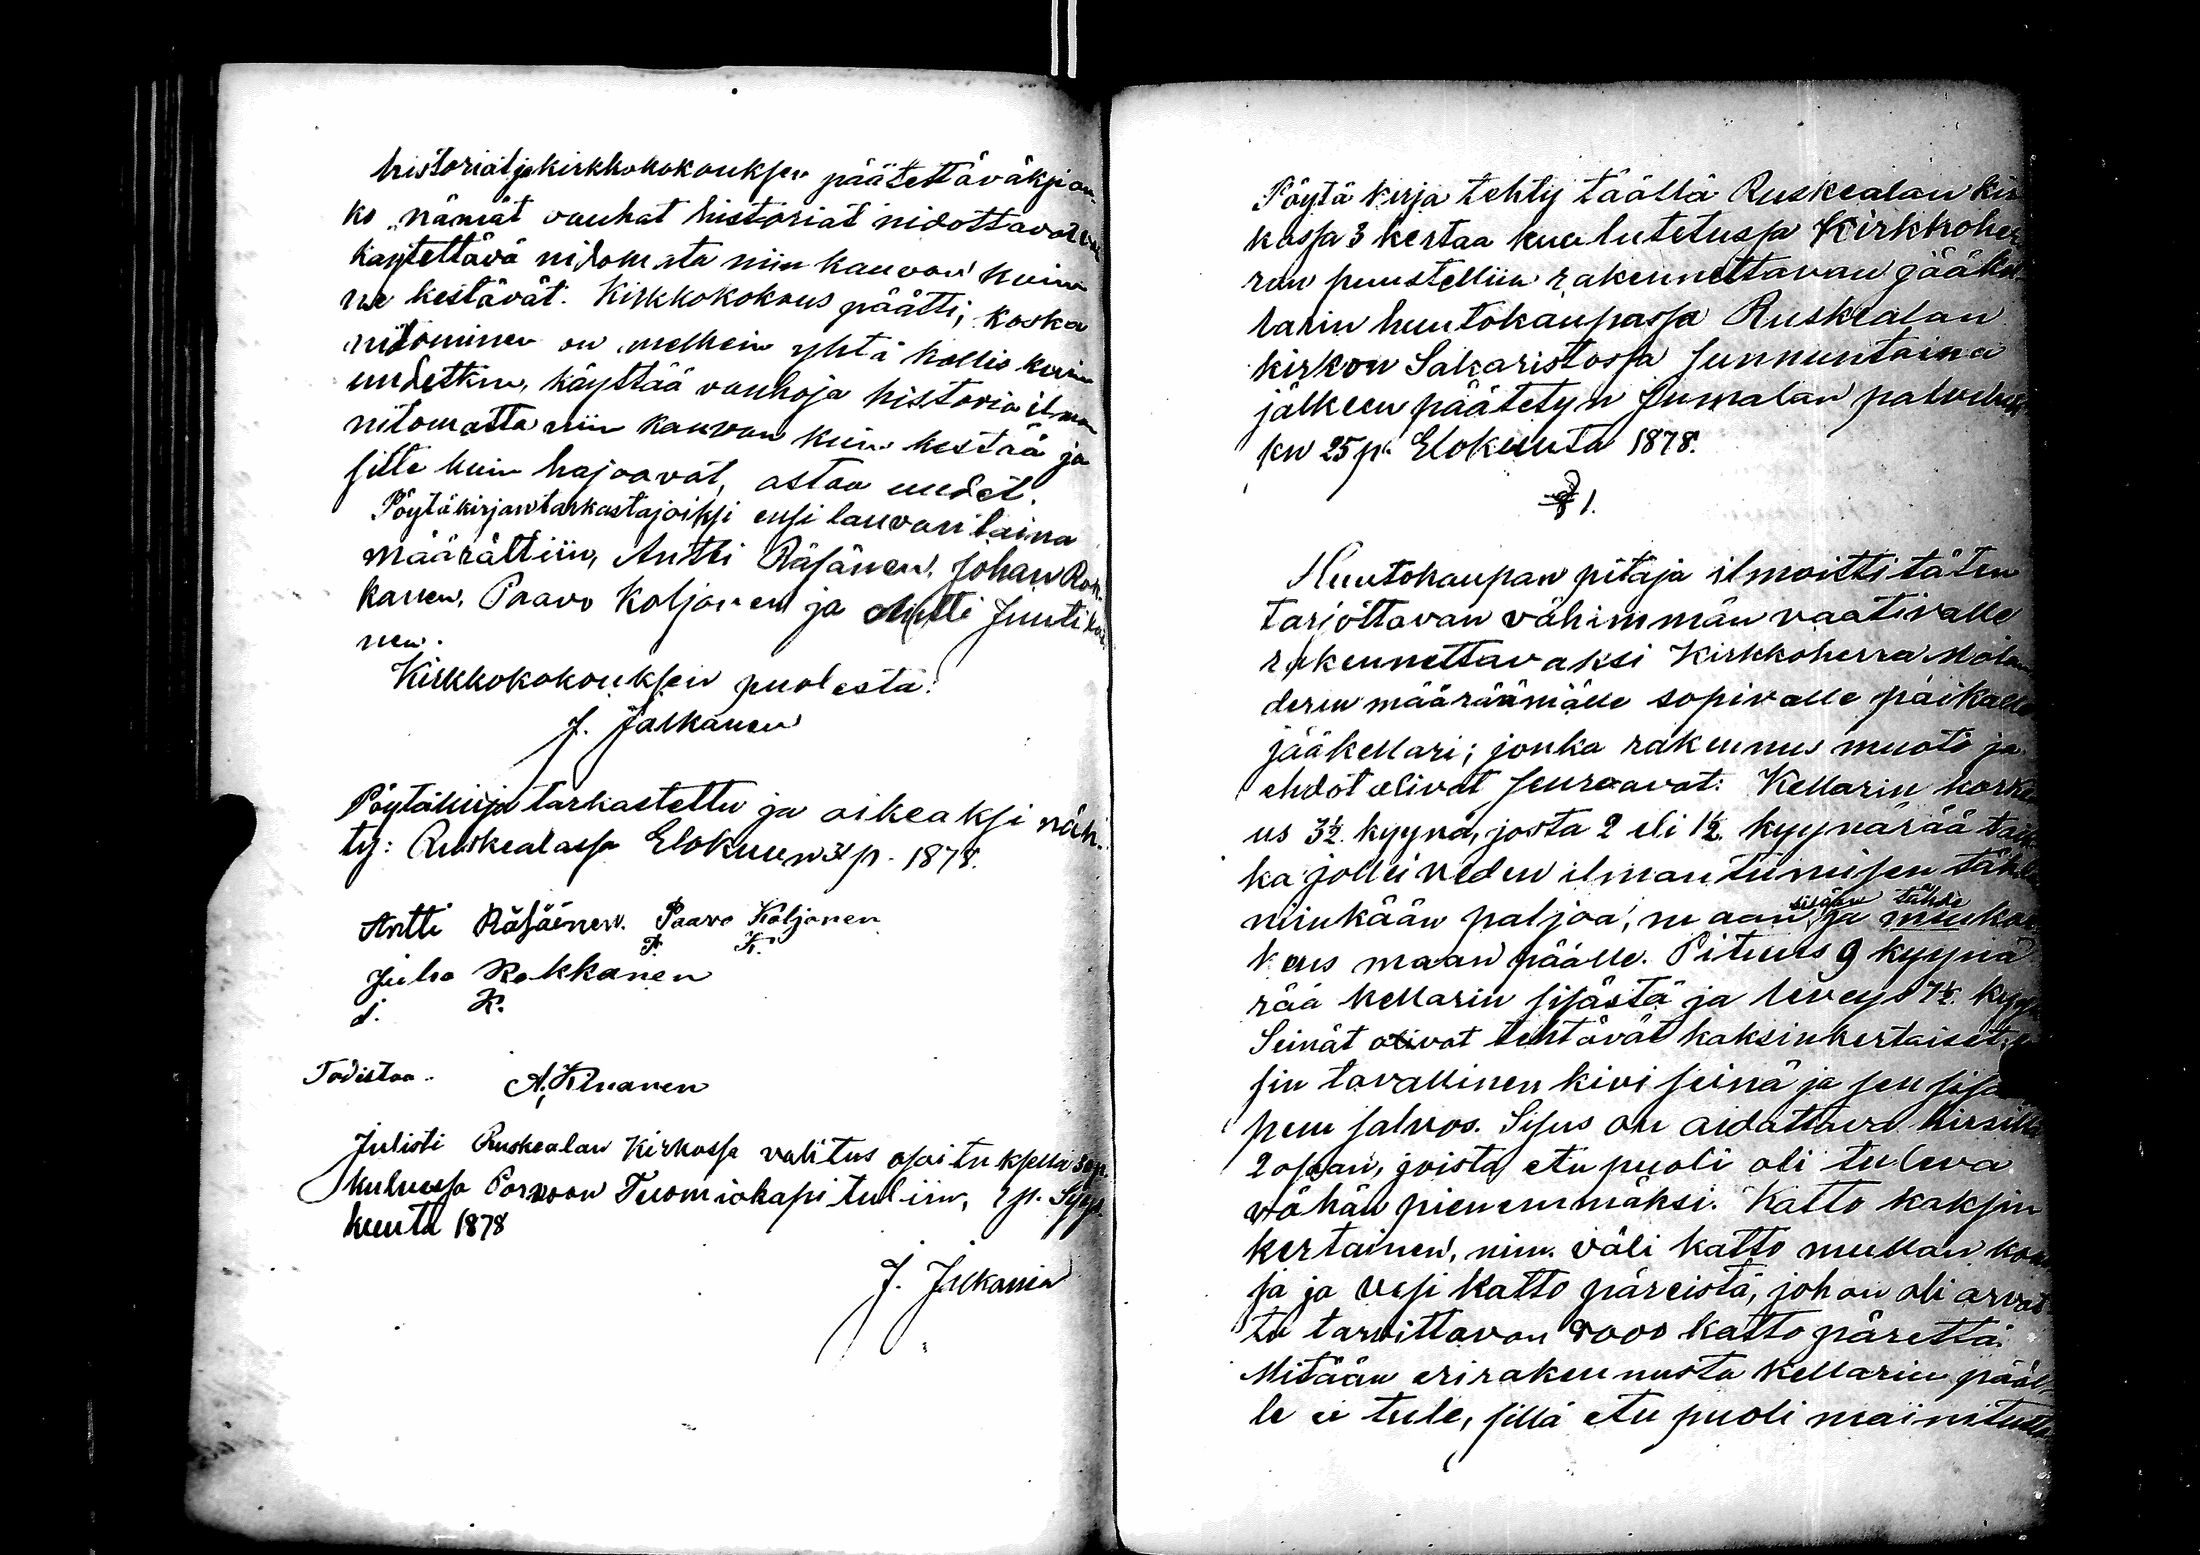 historiat ja kirkkokokouksen päätettäväksi on-
ko nämät vanhat historiat nidottavat
käytettävä nidomata niin kauvan kuin
ne kestävät. Kirkkokokous päätti, koska
nidominen on melkein yhtä kallis kuin
uudetkin, käyttää vanhoja historia ilman
nitomatta niin kauvan kuin kestää ja
sitte kuin hajoavat, ostaa uudet.
Pöytäkirjan tarkastajoiksi ensi lauvantaina
määrättiin, Antti Räsänen, Johan Rok-
kanen, Paavo Koljonen ja Antti Juutilai
nen.
Kirkkokokouksen puolesta:
J. Jalkanen
Pöytäkirja tarkastettu ja oikeaksi näh-
ty: Ruskealassa Elokuun 31 p. 1878.
Antti Räsäinen. Paavo Koljonen
P. K.
Juho Rokkanen
J. R.
Todistaa. A. Kinanen
Julisti Ruskealan Kirkossa valitus osoituksella 30 p.
kuluessa Porvoon Tuomiokapituliin, 1 p. Syys
kuuta 1878
J. Jalkanen
Pöytäkirja tehty täällä Ruskealan kir
kossa 3 kertaa kuulutetussa Kirkkoher
ran puustelliin rakennettavan jääkel
larin huutokaupassa Ruskealan
kirkon Sakaristossa sunnuntaina
jälkeen päätetyn Jumalan palveluk
sen 25 p. Elokuuta 1878.
§ 1.
Huutokaupan pitäjä ilmoitti täten
tarjottavan vähimmän vaativalle
rakennettavaksi Kirkkoherra Molan
derin määräämälle sopivalle paikalle
jääkellari; jonka rakennus muoto ja
ehdot olivat seuraavat: Kellarin korke
us 3½ kyynä, josta 2 eli 1½ kyynärää taik
ka jollei veden ilmantumisen tähden
sisään tähde
niinkään paljoa, maan ja muukor
keus maan päälle. Pituus 9 kyynä
rää kellarin sisästä ja leveys 7½ kyy
Seinät olivat tehtävät kaksinkertaiset,
sin tavallinen kivi seinä ja sen sisä
puu salvos. Sisus on aidattava hirsillä
2 osaan, joista etu puoli oli tuleva
vähän pienemmäksi. Katto kaksin
kertainen, nim. väli katto mullan kan
sa ja vesi katto päreistä, johon oli arvat
tu tarvittavan 9000 katto pärettä.
Mitään eri rakennusta kellarin pääl
le ei tule, sillä etu puoli mainitulla